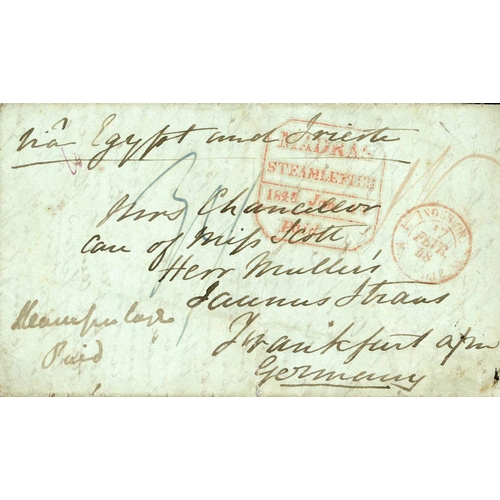 via Egypt and Trieste
MADRAS
STEAM LETTER
1845 Jan
Paid
Mrs Chancellor
Care of Miss Scott
Herr Mullers
Taunus Strass
Frankfurt a/m
Germany
Paid
17
FEVR.